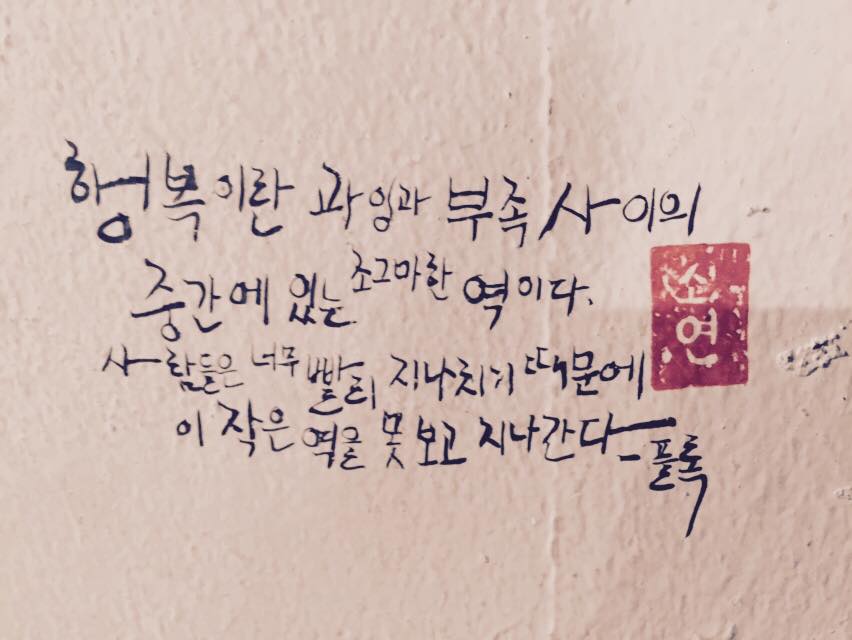 행복이란 과잉과 부족 사이의
중간에 있는 조그마한 역이다.
사람들은 너무 빨리 지나치기 때문에
이 작은 역을 못 보고 지나간다 - 플록
소연